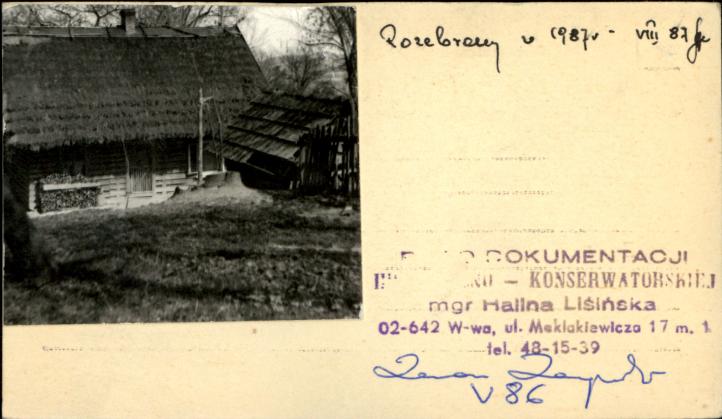 Rozebrany w 1987r - VIII 87
DOKUMENTACJI
— KONSERWATORSKIEJ
mgr Halina Lisińska
02-642 W-wa, ul. Meklakiewicza 17 m. 1
tel. 48-15-39
V 86